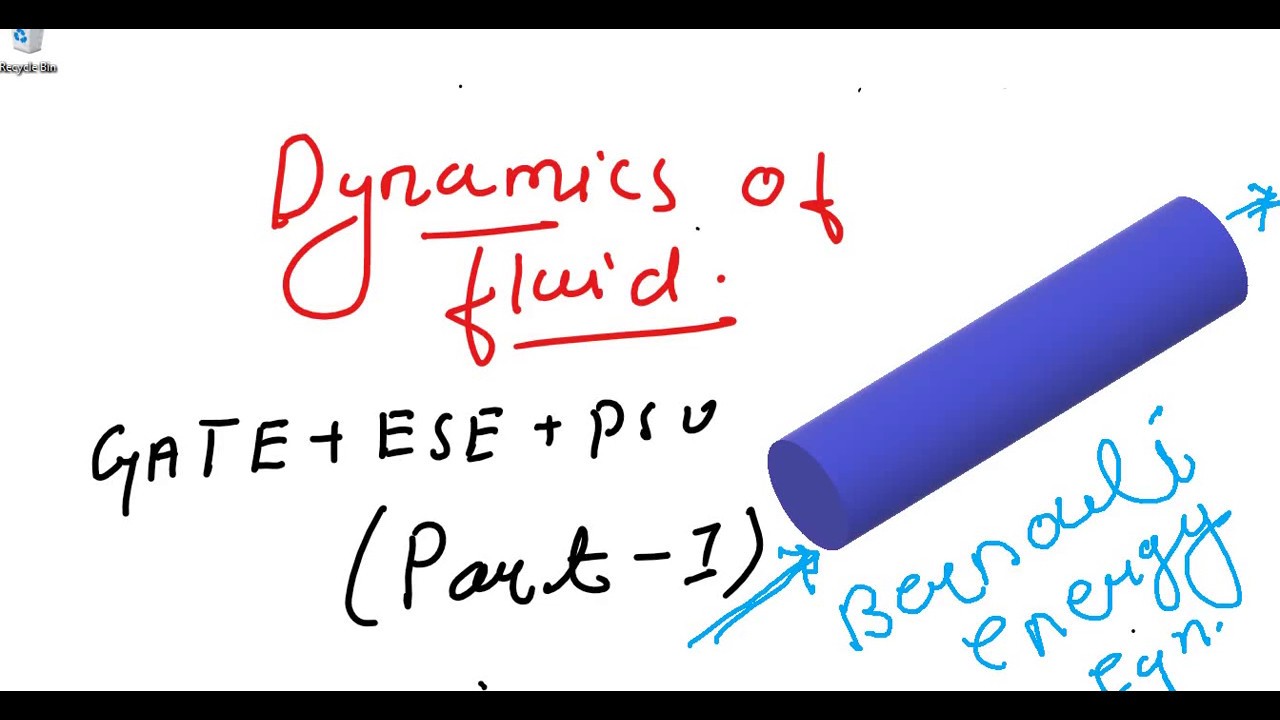 Recycle Bin
Dynamics of
fluid.
GATE + ESE + PSU
(Part - I)
Bernouli
energy
Eqn.